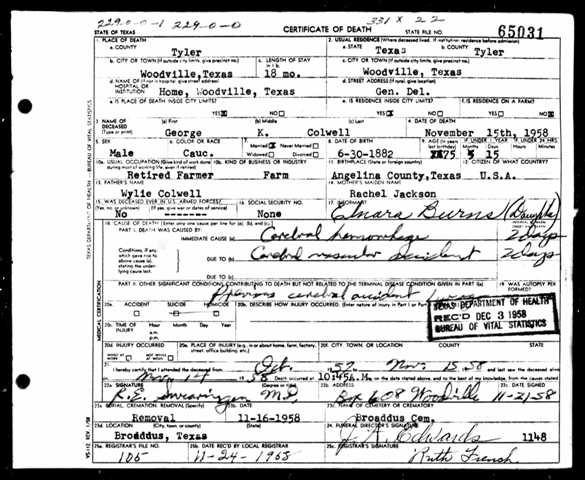 229.0-0-1 229-0-0
331 X 22
STATE OF TEXAS
CERTIFICATE OF DEATH
65031
1. PLACE OF DEATH
2. USUAL RESIDENCE (Where deceased lived. If institution: residence before admission)
a. COUNTY
Tyler
a. STATE
Texas
b. COUNTY
Tyler
b. CITY OR TOWN (If outside city limits, give precinct no.)
Woodville, Texas
c. LENGTH OF STAY
18 mo.
c. CITY OR TOWN (If outside city limits, give precinct no.)
Woodville, Texas
d. NAME OF (If not in hospital, give street address)
HOSPITAL OR
INSTITUTION
Home, Woodville, Texas
d. STREET ADDRESS
Gen. Del.
e. IS PLACE OF DEATH INSIDE CITY LIMITS?
YES NO
e. IS RESIDENCE INSIDE CITY LIMITS?
YES NO
f. IS RESIDENCE ON A FARM?
YES NO
3. NAME OF
DECEASED
(Type or print)
(a) First
George
(b) Middle
K.
(c) Last
Colwell
4. DATE OF DEATH
November 15th, 1958
5. SEX
Male
6. COLOR OR RACE
Cauc.
7. Married Never Married
Widowed Divorced
8. DATE OF BIRTH
6-30-1882
9. AGE (In years
75 5 15
10a. USUAL OCCUPATION
Retired Farmer
10b. KIND OF BUSINESS OR INDUSTRY
Farm
11. BIRTHPLACE (State or foreign country)
Angelina County, Texas
12. CITIZEN OF WHAT COUNTRY?
U.S.A.
13. FATHER'S NAME
Wylie Colwell
14. MOTHER'S MAIDEN NAME
Rachel Jackson
15. WAS DECEASED EVER IN U.S. ARMED FORCES?
No
16. SOCIAL SECURITY NO.
None
17. INFORMANT
Burns (Daughter)
18. CAUSE OF DEATH
PART I. DEATH WAS CAUSED BY:
IMMEDIATE CAUSE (a)
Cerebral hemorrhage
2 days
Conditions, if any,
which gave rise to
above cause (a),
stating the under-
lying cause last.
DUE TO (b)
Cerebral vascular accident
2 days
DUE TO (c)
PART II. OTHER SIGNIFICANT CONDITIONS CONTRIBUTING TO DEATH BUT NOT RELATED TO THE TERMINAL DISEASE CONDITION GIVEN IN PART I(a)
Previous cerebral accident
19. WAS AUTOPSY PERFORMED?
20a. ACCIDENT SUICIDE HOMICIDE
20b. DESCRIBE HOW INJURY OCCURRED.
TEXAS DEPARTMENT OF HEALTH
REC'D DEC 3 1958
BUREAU OF VITAL STATISTICS
20c. TIME OF
INJURY
Hour Month Day Year
20d. INJURY OCCURRED
20e. PLACE OF INJURY
20f. CITY, TOWN, OR LOCATION
COUNTY
STATE
21. I hereby certify that I attended the deceased from
Oct. 57 Nov. 15 58
58 Death occurred at 10:45 A. m. on the date stated above, and to the best of my knowledge, from the causes stated.
22a. SIGNATURE
R.E. M.D.
(Degree or title)
22b. ADDRESS
Box 608 Woodville
22c. DATE SIGNED
11-21-58
23a. BURIAL, CREMATION, REMOVAL (Specify)
Removal
23b. DATE
11-16-1958
23c. NAME OF CEMETERY OR CREMATORY
Broaddus Cem.
23d. LOCATION (City, town, or county) (State)
Broaddus, Texas
24. FUNERAL DIRECTOR'S SIGNATURE
J. A. Edwards
1148
25a. REGISTRAR'S FILE NO.
105
25b. DATE REC'D BY LOCAL REGISTRAR
11-24-1958
25c. REGISTRAR'S SIGNATURE
Ruth French
TEXAS DEPARTMENT OF HEALTH — BUREAU OF VITAL STATISTICS
MEDICAL CERTIFICATION
VS-112 REV. 1/58